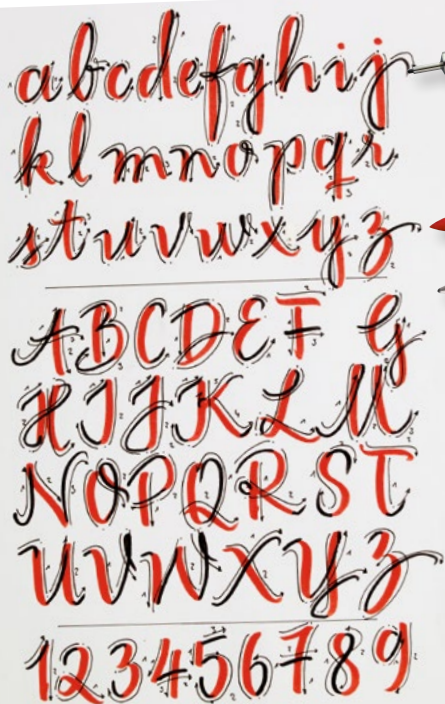 abcdefghij
klmnopqr
stuvwxyz
ABCDEFG
HIJKLM
NOPQRST
UVWXYZ
123456789